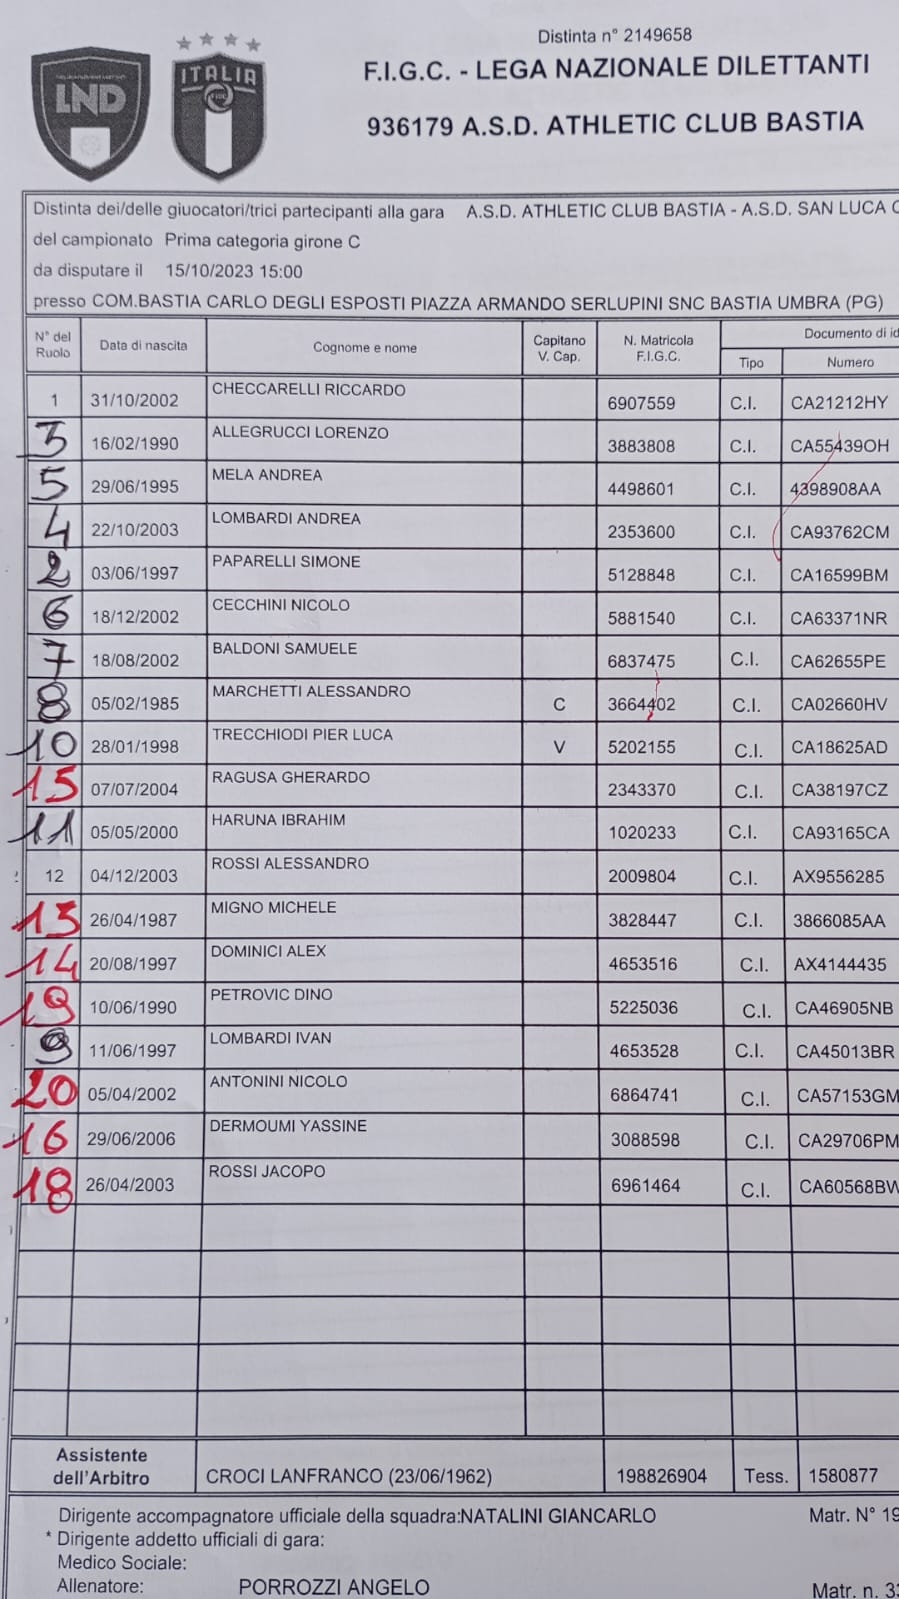 Distinta n° 2149658
LND
ITALIA
F.I.G.C. - LEGA NAZIONALE DILETTANTI
936179 A.S.D. ATHLETIC CLUB BASTIA
Distinta dei/delle giuocatori/trici partecipanti alla gara A.S.D. ATHLETIC CLUB BASTIA - A.S.D. SAN LUCA
del campionato Prima categoria girone C
da disputare il 15/10/2023 15:00
presso COM.BASTIA CARLO DEGLI ESPOSTI PIAZZA ARMANDO SERLUPINI SNC BASTIA UMBRA (PG)
N° del Ruolo Data di nascita Cognome e nome Capitano V. Cap. N. Matricola F.I.G.C. Documento di id
Tipo Numero
1 31/10/2002 CHECCARELLI RICCARDO 6907559 C.I. CA21212HY
3 16/02/1990 ALLEGRUCCI LORENZO 3883808 C.I. CA55439OH
5 29/06/1995 MELA ANDREA 4498601 C.I. 4398908AA
4 22/10/2003 LOMBARDI ANDREA 2353600 C.I. CA93762CM
2 03/06/1997 PAPARELLI SIMONE 5128848 C.I. CA16599BM
6 18/12/2002 CECCHINI NICOLO 5881540 C.I. CA63371NR
7 18/08/2002 BALDONI SAMUELE 6837475 C.I. CA62655PE
8 05/02/1985 MARCHETTI ALESSANDRO C 3664402 C.I. CA02660HV
10 28/01/1998 TRECCHIODI PIER LUCA V 5202155 C.I. CA18625AD
15 07/07/2004 RAGUSA GHERARDO 2343370 C.I. CA38197CZ
11 05/05/2000 HARUNA IBRAHIM 1020233 C.I. CA93165CA
12 04/12/2003 ROSSI ALESSANDRO 2009804 C.I. AX9556285
13 26/04/1987 MIGNO MICHELE 3828447 C.I. 3866085AA
14 20/08/1997 DOMINICI ALEX 4653516 C.I. AX4144435
19 10/06/1990 PETROVIC DINO 5225036 C.I. CA46905NB
9 11/06/1997 LOMBARDI IVAN 4653528 C.I. CA45013BR
20 05/04/2002 ANTONINI NICOLO 6864741 C.I. CA57153GM
16 29/06/2006 DERMOUMI YASSINE 3088598 C.I. CA29706PM
18 26/04/2003 ROSSI JACOPO 6961464 C.I. CA60568BW
Assistente dell'Arbitro CROCI LANFRANCO (23/06/1962) 198826904 Tess. 1580877
Dirigente accompagnatore ufficiale della squadra:NATALINI GIANCARLO Matr. N° 19
* Dirigente addetto ufficiali di gara:
Medico Sociale:
Allenatore: PORROZZI ANGELO Matr. n. 33